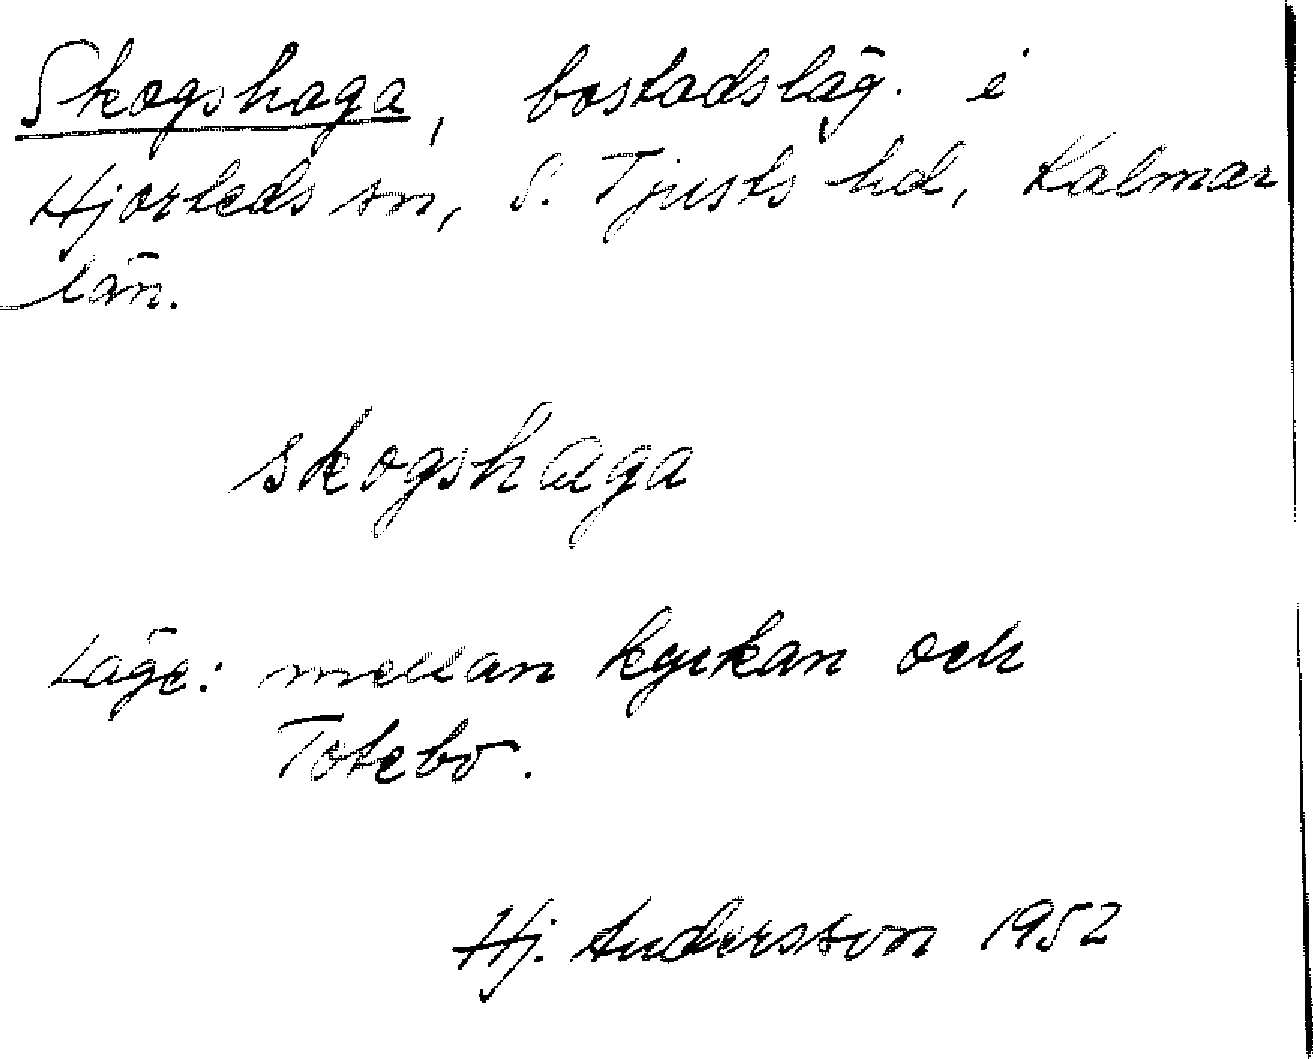 Skogshaga, bostadsläg. i
Hjorteds sn, S. Tjusts hd, Kalmar
län.
skogshaga
Läge: mellan kyrkan och
Totebo.
Hj. Andersson 1952